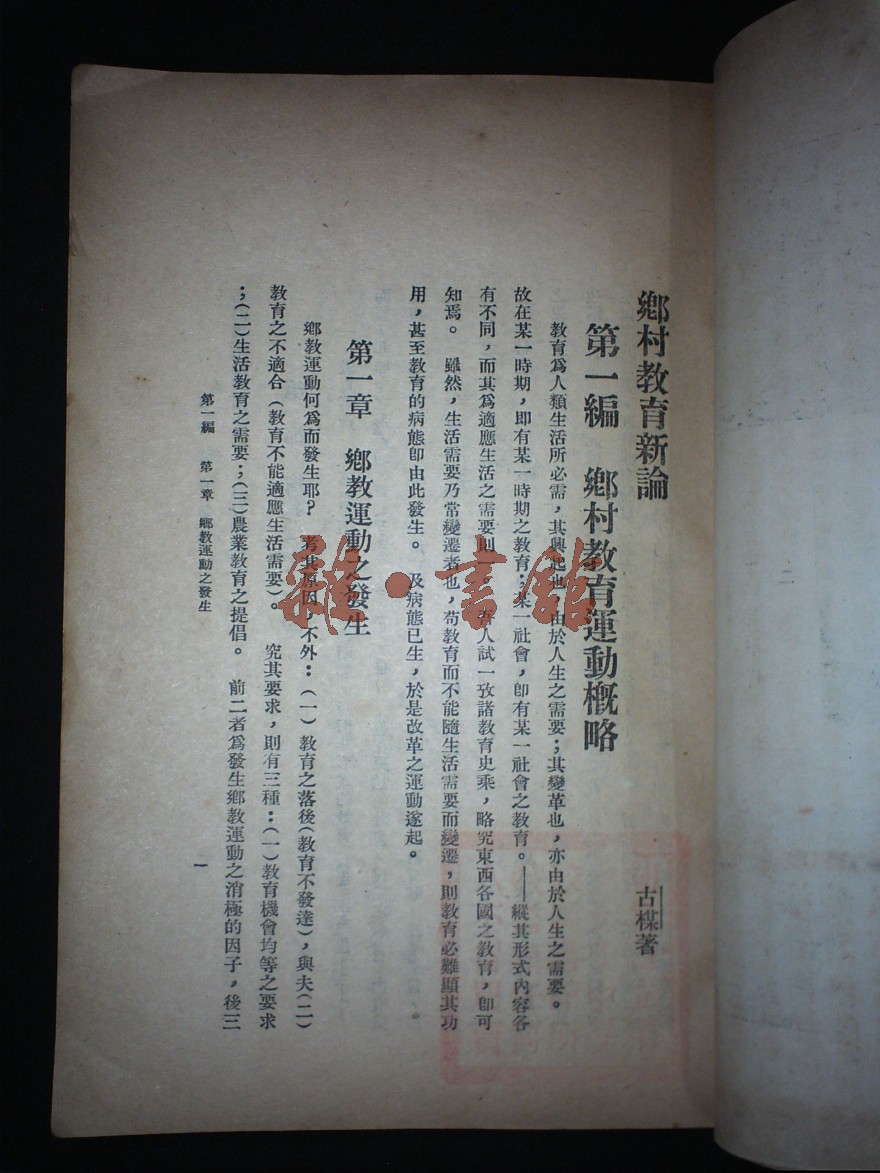 鄉村教育新論
古楳著
第一編　鄉村教育運動概略
教育爲人類生活所必需，其興起也，由於人生之需要；其變革也，亦由於人生之需要。
故在某一時期，即有某一時期之教育；某一社會，卽有某一社會之教育。——縱其形式內容各
有不同，而其爲適應生活之需要則一。吾人試一攷諸教育史乘，略究東西各國之教育，卽可
知焉。　雖然，生活需要乃常變遷者也，苟教育而不能隨生活需要而變遷，則教育必難顯其功
用，甚至教育的病態卽由此發生。　及病態已生，於是改革之運動遂起。
第一章　鄉教運動之發生
鄉教運動何爲而發生耶？　考其原因，不外：（一）教育之落後（教育不發達），與夫（二）
教育之不適合（教育不能適應生活需要）。　究其要求，則有三種：（一）教育機會均等之要求
；（二）生活教育之需要；（三）農業教育之提倡。　前二者爲發生鄉教運動之消極的因子，後三
第一編　第一章　鄉教運動之發生
一
雜·書館